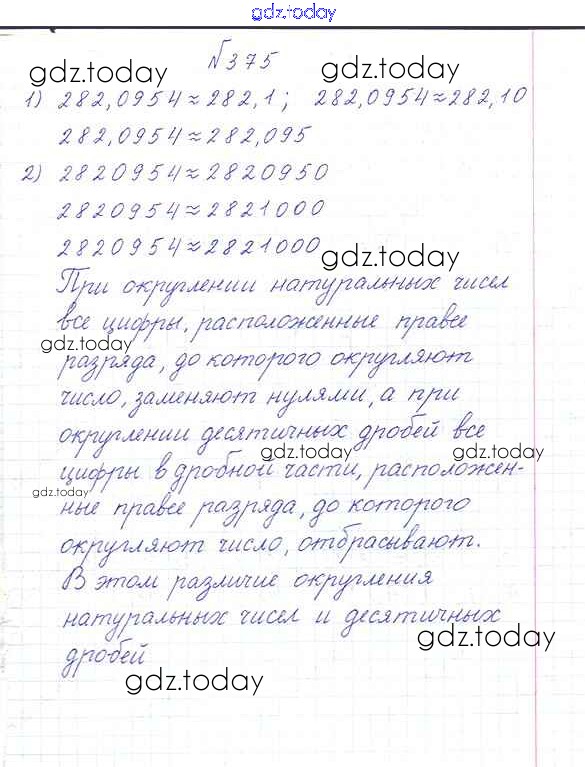 gdz.today
№375
gdz.today gdz.today
1) 282,0954≈282,1; 282,0954≈282,10
282,0954≈282,095
2) 2820954≈2820950
2820954≈2821000
2820954≈2821000
gdz.today
При округлении натуральных чисел
все цифры, расположенные правее
gdz.today
разряда, до которого округляют
число, заменяют нулями, а при
округлении десятичных дробей все
gdz.today gdz.today
цифры в дробной части, расположен-
gdz.today
ные правее разряда, до которого
округляют число, отбрасывают.
В этом различие округления
натуральных чисел и десятичных
gdz.today
дробей
gdz.today